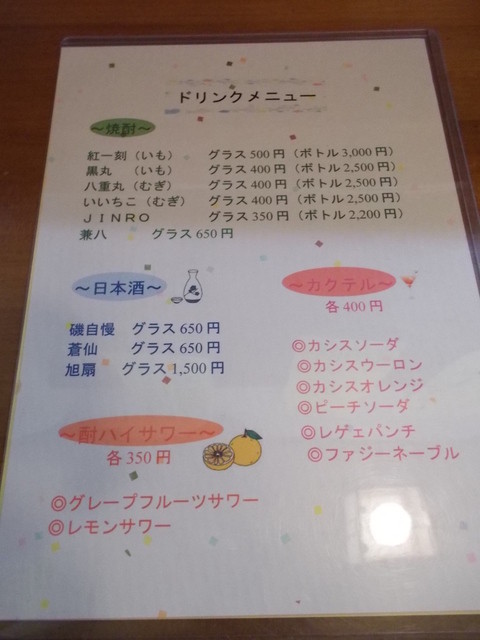 ドリンクメニュー
～焼酎～
紅一刻（いも） グラス500円（ボトル3,000円）
黒丸 （いも） グラス400円（ボトル2,500円）
八重丸（むぎ） グラス400円（ボトル2,500円）
いいちこ（むぎ） グラス400円（ボトル2,500円）
ＪＩＮＲＯ グラス350円（ボトル2,200円）
兼八 グラス650円
～日本酒～
磯自慢 グラス650円
蒼仙 グラス650円
旭扇 グラス1,500円
～カクテル～
各400円
◎カシスソーダ
◎カシスウーロン
◎カシスオレンジ
◎ピーチソーダ
◎レゲェパンチ
◎ファジーネーブル
～酎ハイサワー～
各350円
◎グレープフルーツサワー
◎レモンサワー